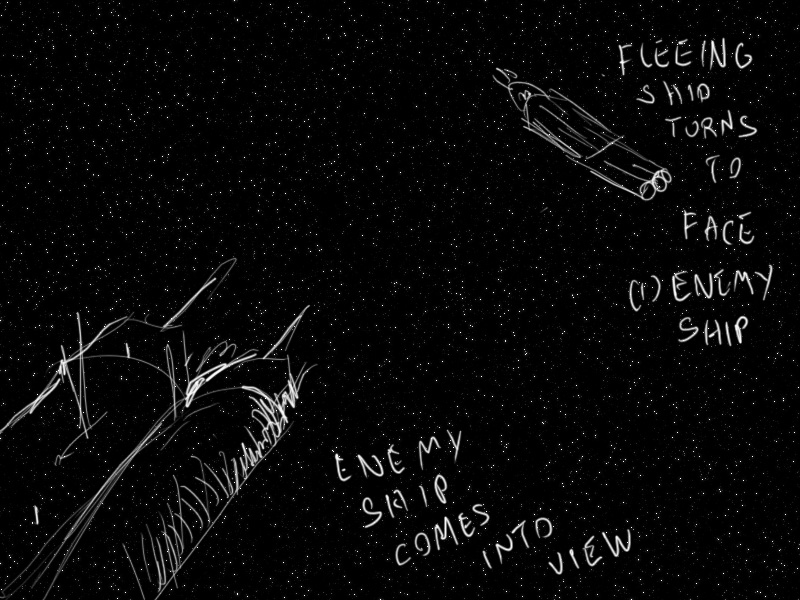 FLEEING
SHIP
TURNS
TO
FACE
(1) ENEMY
SHIP
ENEMY
SHIP
COMES
INTO
VIEW